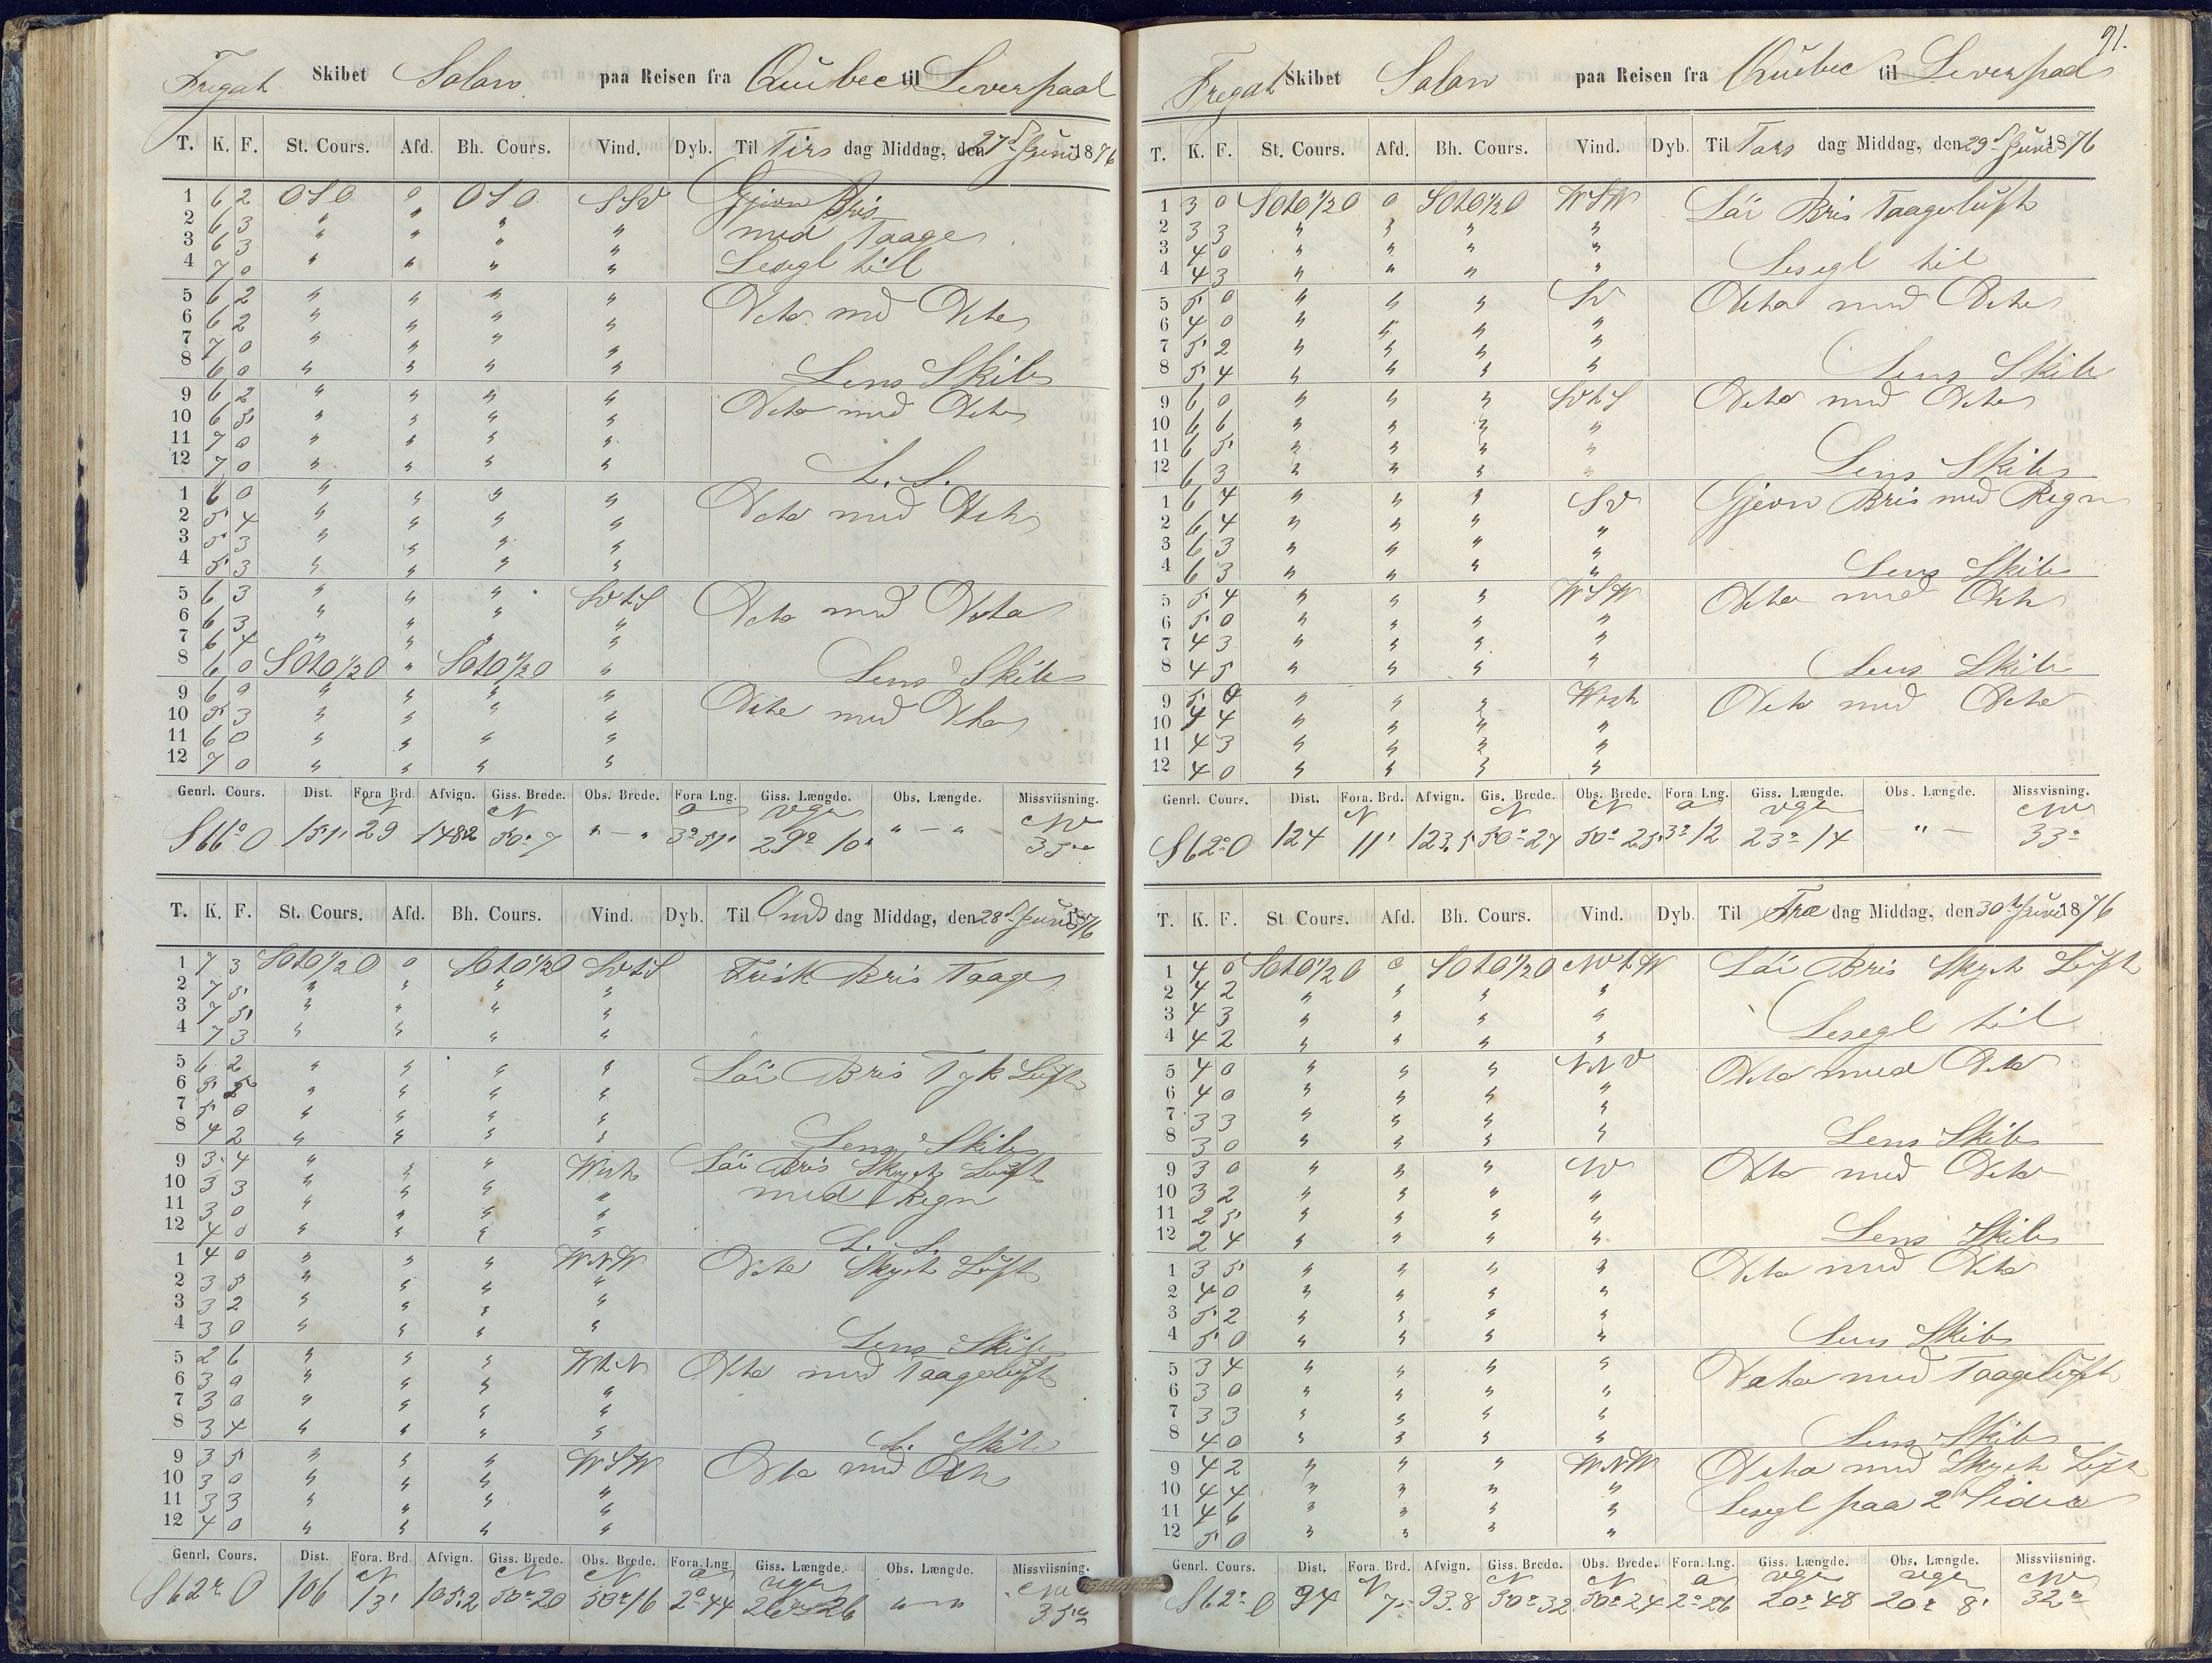 Fregat Skibet Solon paa Reisen fra Quübec til Leverpaal
T. K. F. St. Cours. Afd. Bh. Cours. Vind. Dyb. Til Tirs dag Middag, den 27d Juni 1876
1 6 2 OSO 0 OSO SSV Gjevn Bris
2 6 3 " " " " med Taage
3 6 3 " " " "
4 7 0 " " " " Lesegl till
5 6 2 " " " " Deto med Deto
6 6 2 " " " "
7 7 0 " " " "
8 6 0 " " " " Lens Skib
9 6 2 " " " " Deto med Deto
10 6 5 " " " "
11 7 0 " " " "
12 7 0 " " " " L. S.
1 6 0 " " " " Deto med Deto
2 5 4 " " " "
3 5 3 " " " "
4 5 3 " " " "
5 6 3 " " " SVtS Deto med Deto
6 6 3 " " " "
7 6 4 " " " "
8 6 0 SOtO1/2O " SOtO1/2O " Lens Skib
9 6 0 " " " " Deto med Deto
10 5 3 " " " "
11 6 0 " " " "
12 7 0 " " " "
Genrl. Cours. Dist. Fora. Brd. Afvign. Giss. Brede. Obs. Brede. Fora Lng. Giss. Længde. Obs. Længde. Missviisning.
N N O vgr NW
S66°O 151 29 148.2 50°7 " — " 3°51 29° 10' " — " 35°
T. K. F. St. Cours. Afd. Bh. Cours. Vind. Dyb. Til Ons dag Middag, den 28d Juni 1876
1 7 3 SOtO1/2O 0 SOtO1/2O SVtS Frisk Bris Taage
2 7 5 " " " "
3 7 5 " " " "
4 7 3 " " " "
5 6 2 " " " " Löi Bris Tyk Luft
6 5 5 " " " "
7 5 0 " " " "
8 4 2 " " " " Lens Skib
9 3 4 " " " West Löi Bris Skyet Luft
10 3 3 " " " " med Regn
11 3 0 " " " "
12 4 0 " " " " L. S.
1 4 0 " " " WNW Deto Skyet Luft
2 3 5 " " " "
3 3 2 " " " "
4 3 0 " " " " Lens Skib
5 2 6 " " " WtN Deto med Taageluft
6 3 0 " " " "
7 3 0 " " " "
8 3 4 " " " " L. Skib
9 3 5 " " " WSW Deto med Deto
10 3 0 " " " "
11 3 3 " " " "
12 4 0 " " " "
Genrl. Cours. Dist. Fora. Brd. Afvign. Giss. Brede. Obs. Brede. Fora. Lng. Giss. Længde. Obs. Længde. Missviisning.
N N N O vgr NW
S62°O 106 13' 105.2 50°20 50°16 2°44 26°26 " — " 35°
91.
Fregat Skibet Solon paa Reisen fra Quübec til Leverpaal
T. K. F. St. Cours. Afd. Bh. Cours. Vind. Dyb. Til Tors dag Middag, den 29d Juni 1876
1 3 0 SOtO1/2O 0 SOtO1/2O WSW Löi Bris Taageluft
2 3 3 " " " "
3 4 0 " " " " Lesegl til
4 4 3 " " " "
5 5 0 " " " SV Deto med Deto
6 4 0 " " " "
7 5 2 " " " "
8 5 4 " " " " Lens Skib
9 6 0 " " " SVtS Deto med Deto
10 6 6 " " " "
11 6 5 " " " "
12 6 3 " " " " Lens Skib
1 6 4 " " " SV Gjevn Bris med Regn
2 6 4 " " " "
3 6 3 " " " "
4 6 3 " " " " Lens Skib
5 5 4 " " " WSW Deto med Deto
6 5 0 " " " "
7 4 3 " " " "
8 4 5 " " " " Lens Skib
9 5 0 " " " West Deto med Deto
10 4 4 " " " "
11 4 3 " " " "
12 4 0 " " " "
Genrl. Cours. Dist. Fora. Brd. Afvign. Gis. Brede. Obs. Brede. Fora. Lng. Giss. Længde. Obs. Længde. Missvisning.
N N N O vgr NW
S62°O 124 11' 123.5 50°27 50°25' 3°12 23° 14 " — 33°
T. K. F. St. Cours. Afd. Bh. Cours. Vind. Dyb. Til Fre dag Middag, den 30d Juni 1876
1 4 0 SOtO1/2O 0 SOtO1/2O NVtW Löi Bris Skyet Luft
2 4 2 " " " "
3 4 3 " " " " Lesegl til
4 4 2 " " " "
5 4 0 " " " NNV Deto med Deto
6 4 0 " " " "
7 3 3 " " " "
8 3 0 " " " " Lens Skib
9 3 0 " " " NV Deto med Deto
10 3 2 " " " "
11 2 5 " " " "
12 2 4 " " " " Lens Skib
1 3 5 " " " " Deto med Deto
2 4 0 " " " "
3 5 2 " " " "
4 5 0 " " " " Lens Skib
5 3 4 " " " " Deto med Taageluft
6 3 0 " " " "
7 3 3 " " " "
8 4 0 " " " " Lens Skib
9 4 2 " " " WNW Deto med Skyet Luft
10 4 4 " " " " Lesegl paa 2 Sider
11 4 6 " " " "
12 5 0 " " " "
Genrl. Cours. Dist. Fora. Brd. Afvign. Giss. Brede. Obs. Brede. Fora. Lng. Giss. Længde. Obs. Længde. Missviisning.
N N N O vgr vgr NW
S62°O 94 7 93.8 50°32 50°24 2°26 20°48 20° 8' 32°